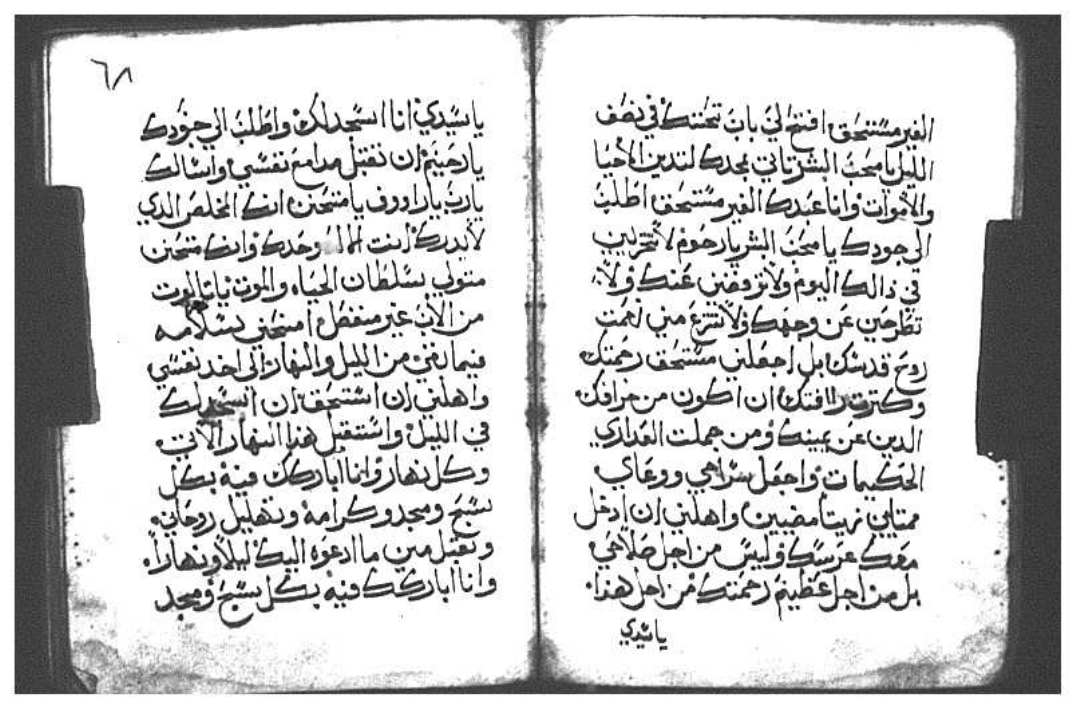 الغير مستحق افتح لي باب تحننك في نصف
الليل يا محب البشر تاتي بمجدك لتدين الاحيا
والاموات وانا عبدك الغير مستحق اطلب
الي جودك يا محب البشر يا رحوم لا تخزيني
في ذالك اليوم ولا ترفضني عنك ولا
تطرحني عن وجهك ولا تنزع مني نعمت
روح قدسك بل اجعلني مستحق رحمتك
وكترت رافتك ان اكون من خرافك
الدين عن يمينك ومن جملت العداري
الحكيمات واجعل سراجي ووعاي
ممتلي زيتا مضيين واهلني ان ادخل
معك عرسك وليس من اجل صلاحي
بل من اجل عظيم رحمتك من اجل هذا
يا سيدي
٦٨
يا سيدي انا اسجد لك واطلب الي جودك
يا رحيم ان تقبل مدامع نفسي واسالك
يا رب يا راووف يا متحنن انك المخلص الدي
لا يدرك انت الالاه وحدك وانك متحنن
متولي بسلطان الحياه والموت
من الاب غير منفصل امنحني بسلامه
فيما بقي من الليل والنهار الي اخد نفسي
واهلني ان استحق ان اسجد لك
في الليل واستقبل هذا النهار الاتي
وكل نهار وانا اباركك فيه بكل
تسبيح ومجد وكرامه وتهليل روحاني
وتقبل مني ما ادعوه اليك ليلا ونهارا
وانا اباركك فيه بكل تسبيح ومجد